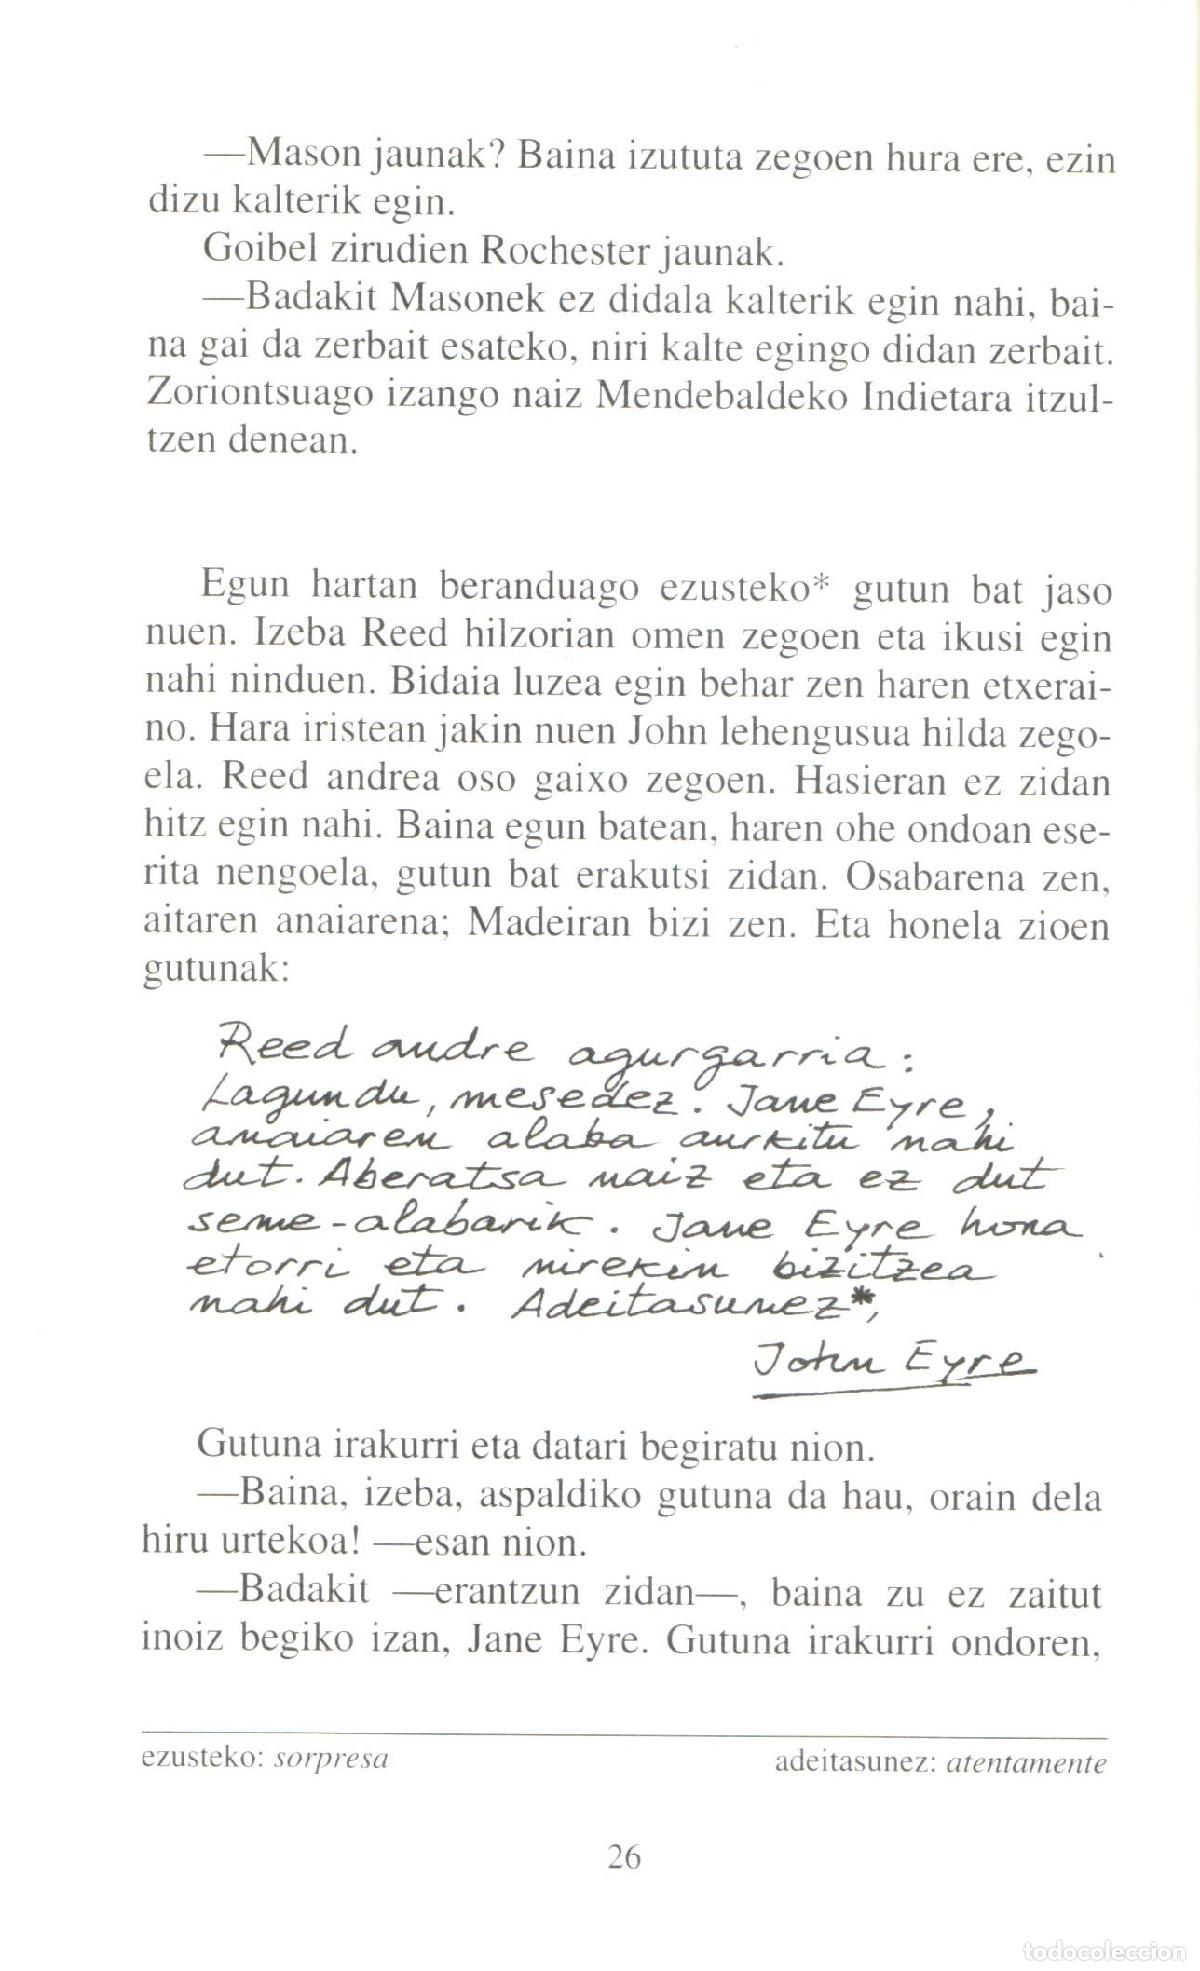 —Mason jaunak? Baina izututa zegoen hura ere, ezin
dizu kalterik egin.
Goibel zirudien Rochester jaunak.
—Badakit Masonek ez didala kalterik egin nahi, bai-
na gai da zerbait esateko, niri kalte egingo didan zerbait.
Zoriontsuago izango naiz Mendebaldeko Indietara itzul-
tzen denean.
Egun hartan beranduago ezusteko* gutun bat jaso
nuen. Izeba Reed hilzorian omen zegoen eta ikusi egin
nahi ninduen. Bidaia luzea egin behar zen haren etxerai-
no. Hara iristean jakin nuen John lehengusua hilda zego-
ela. Reed andrea oso gaixo zegoen. Hasieran ez zidan
hitz egin nahi. Baina egun batean, haren ohe ondoan ese-
rita nengoela, gutun bat erakutsi zidan. Osabarena zen,
aitaren anaiarena; Madeiran bizi zen. Eta honela zioen
gutunak:
Reed andre agurgarria:
Lagundu, mesedez. Jane Eyre,
anaiaren alaba aurkitu nahi
dut. Aberatsa naiz eta ez dut
seme-alabarik. Jane Eyre hona
etorri eta nirekin bizitzea
nahi dut. Adeitasunez*,
John Eyre
Gutuna irakurri eta datari begiratu nion.
—Baina, izeba, aspaldiko gutuna da hau, orain dela
hiru urtekoa! —esan nion.
—Badakit —erantzun zidan—, baina zu ez zaitut
inoiz begiko izan, Jane Eyre. Gutuna irakurri ondoren,
ezusteko: sorpresa
adeitasunez: atentamente
26
todocoleccion